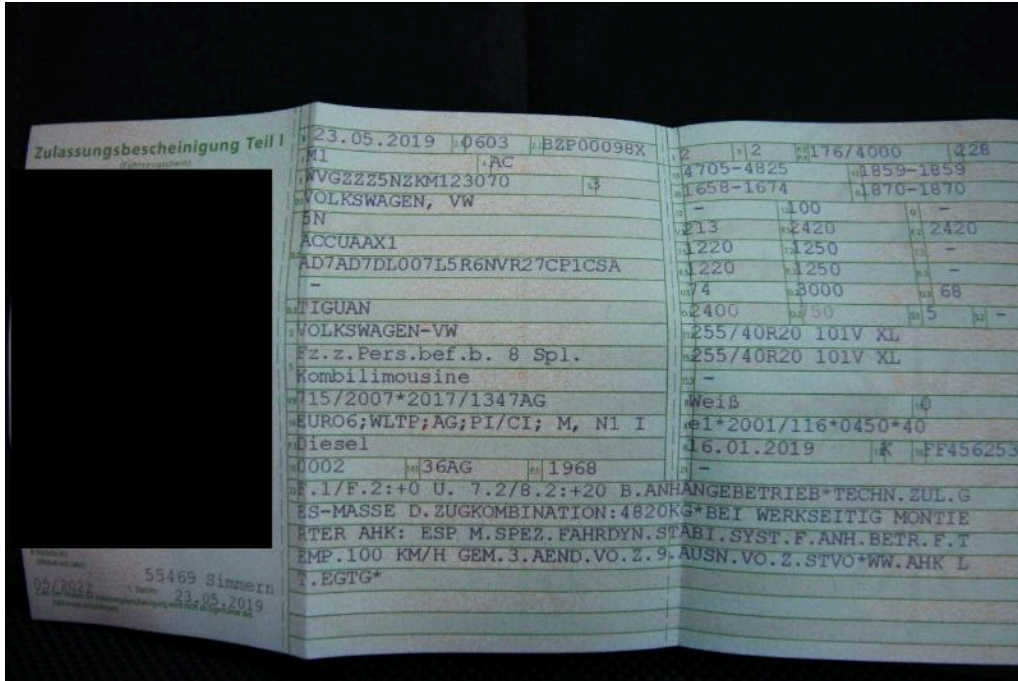 Zulassungsbescheinigung Teil I
(Fahrzeugschein)
05/2022
55469 Simmern
23.05.2019
23.05.2019 0603 BZP00098X
M1 AC
WVGZZZ5NZKM123070 3
VOLKSWAGEN, VW
5N
ACCUAAX1
AD7AD7DL007L5R6NVR27CP1CSA
-
TIGUAN
VOLKSWAGEN-VW
Fz.z.Pers.bef.b. 8 Spl.
Kombilimousine
715/2007*2017/1347AG
EURO6;WLTP;AG;PI/CI; M, N1 I
Diesel
0002 36AG 1968
2 2 176/4000 228
4705-4825 1859-1859
1658-1674 1870-1870
- 100 -
213 2420 2420
1220 1250 -
1220 1250 -
74 3000 68
2400 750 5 -
255/40R20 101V XL
255/40R20 101V XL
-
Weiß 0
e1*2001/116*0450*40
16.01.2019 K FF456253
-
F.1/F.2:+0 U. 7.2/8.2:+20 B.ANHÄNGEBETRIEB*TECHN.ZUL.G
ES-MASSE D.ZUGKOMBINATION:4820KG*BEI WERKSEITIG MONTIE
RTER AHK: ESP M.SPEZ.FAHRDYN.STABI.SYST.F.ANH.BETR.F.T
EMP.100 KM/H GEM.3.AEND.VO.Z.9.AUSN.VO.Z.STVO*WW.AHK L
T.EGTG*